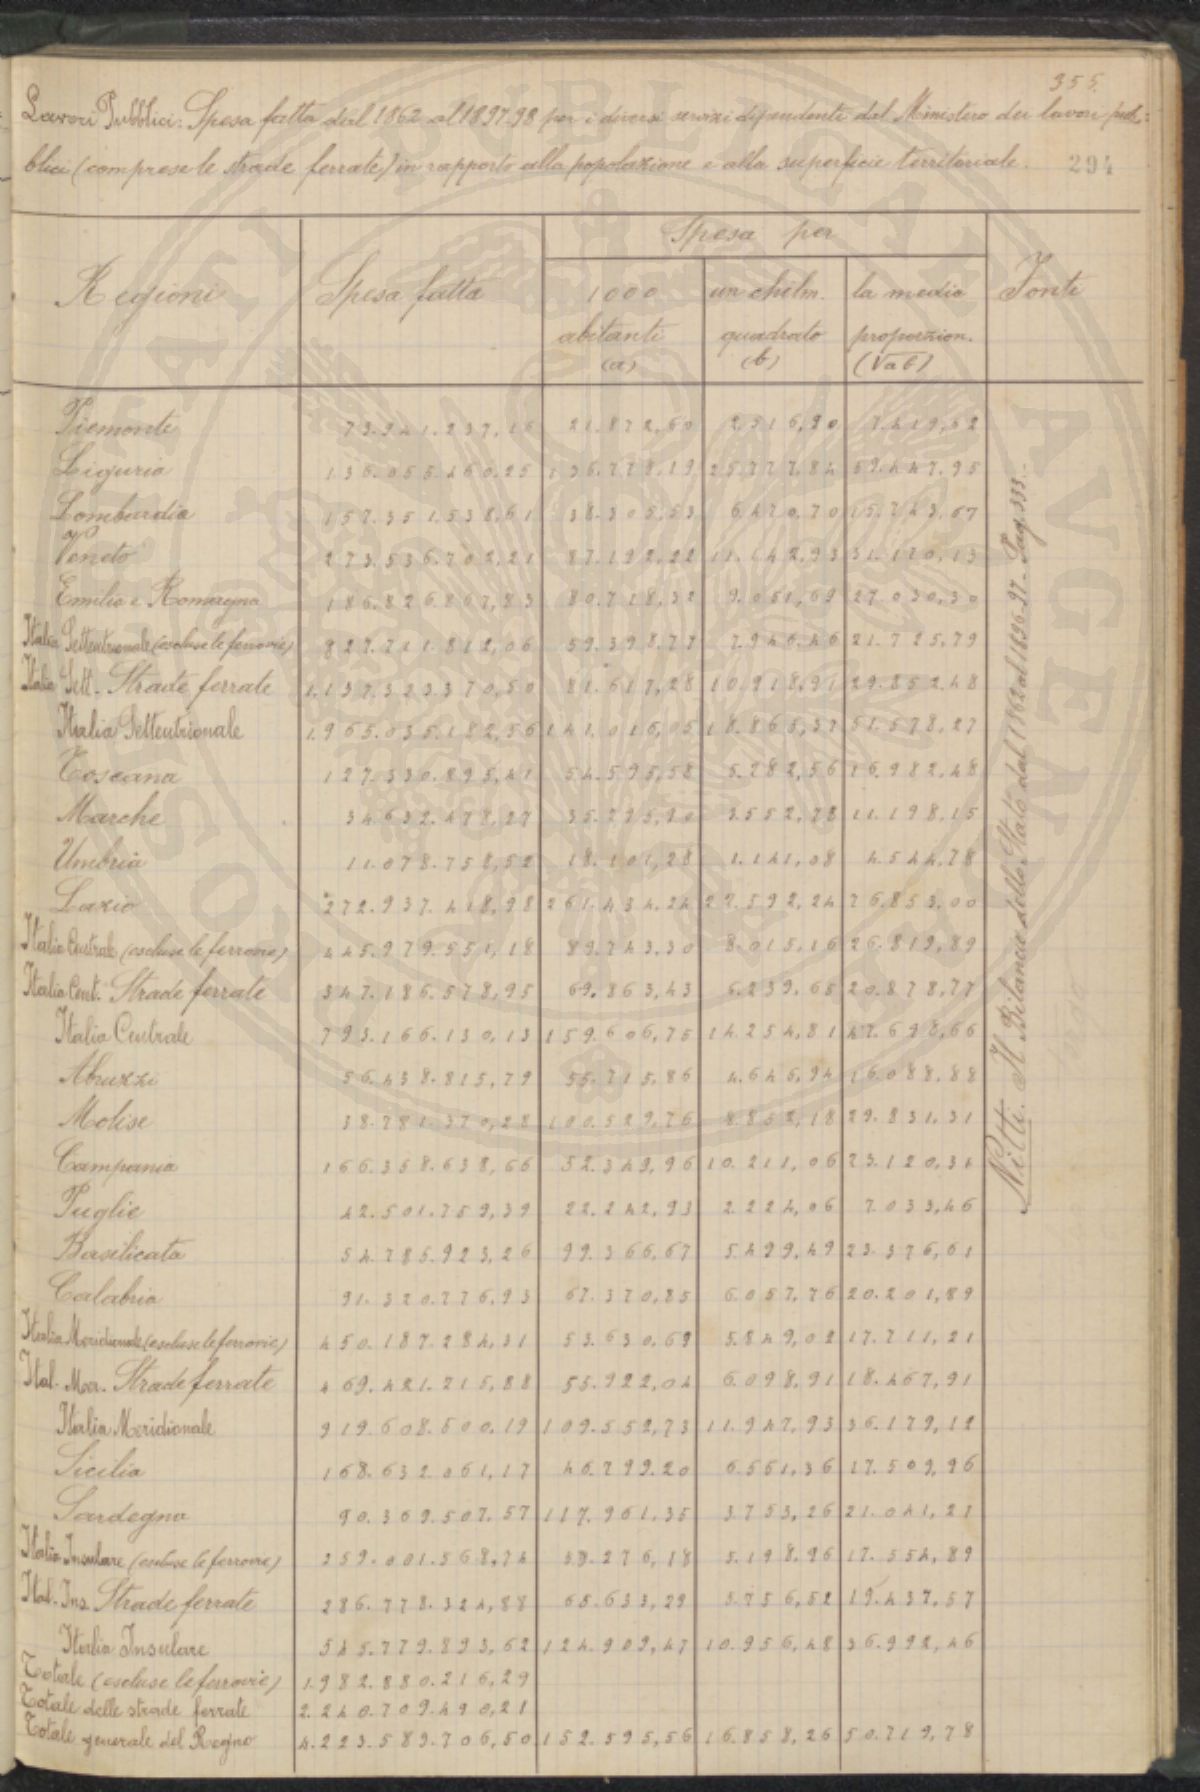 355.
Lavori Pubblici: Spesa fatta dal 1862 al 1897.98 per i diversi servizi dipendenti dal Ministero dei lavori pub=
blici (comprese le strade ferrate) in rapporto alla popolazione e alla superficie territoriale. 294
Spesa per
Regioni Spesa fatta 1000 un chilm. la media Fonti
abitanti quadrato proporzion.
(a) (b) (√ab)
Piemonte 73.941.237,16 21.872,60 2.516,90 7.419,62
Liguria 136.055.460,25 136.778,19 25.777,84 59.447,95
Lombardia 157.351.538,61 38.305,53 6.470,70 15.743,67
Veneto 273.536.702,21 87.192,22 11.142,93 31.170,13
Emilia e Romagna 186.826.867,83 80.718,32 9.051,69 27.030,30
Italia Settentrionale (escluse le ferrovie) 827.711.812,06 59.398,77 7.946,46 21.725,79
Italia Sett. Strade ferrate 1.137.323.370,50 81.617,28 10.918,91 29.852,48
Italia Settentrionale 1.965.035.182,56 141.016,05 18.865,37 51.578,27
Toscana 127.330.895,41 54.595,58 5.282,56 16.982,48
Marche 34.632.478,27 35.295,90 3.552,78 11.198,15
Umbria 11.078.758,52 18.101,28 1.141,08 4.544,78
Lazio 272.937.418,98 261.434,24 22.592,24 76.853,00
Italia Centrale (escluse le ferrovie) 445.979.551,18 89.743,30 8.015,16 26.819,89
Italia Cent. Strade ferrate 347.186.578,95 69.863,43 6.239,65 20.878,77
Italia Centrale 793.166.130,13 159.606,75 14.254,81 47.698,66
Abruzzi 56.438.815,79 55.715,86 4.646,94 16.088,88
Molise 38.781.370,28 100.529,76 8.852,18 29.831,31
Campania 166.358.638,66 52.349,96 10.211,06 23.120,31
Puglie 42.501.759,39 22.242,93 2.224,06 7.033,46
Basilicata 54.786.923,26 99.366,67 5.499,49 23.376,61
Calabria 91.320.776,93 67.370,85 6.057,76 20.201,89
Italia Meridionale (escluse le ferrovie) 450.187.284,31 53.630,69 5.849,02 17.711,21
Ital. Mer. Strade ferrate 469.421.215,88 55.922,04 6.098,91 18.467,91
Italia Meridionale 919.608.500,19 109.552,73 11.947,93 36.179,12
Sicilia 168.632.061,17 46.799,20 6.561,36 17.509,96
Sardegna 90.369.507,57 117.961,35 3753,26 21.041,21
Italia Insulare (escluse le ferrovie) 259.001.568,74 59.276,18 5.198,96 17.554,89
Ital. Ins. Strade ferrate 286.778.324,88 65.633,29 5.756,52 19.437,57
Italia Insulare 545.779.893,62 124.909,47 10.956,48 36.992,46
Totale (escluse le ferrovie) 1.982.880.216,29
Totale delle strade ferrate 2.240.709.490,21
Totale generale del Regno 4.223.589.706,50 152.595,56 16.858,26 50.719,78
Nitti. Il Bilancio dello Stato dal 1862 al 1896-97 - Pag. 333.-